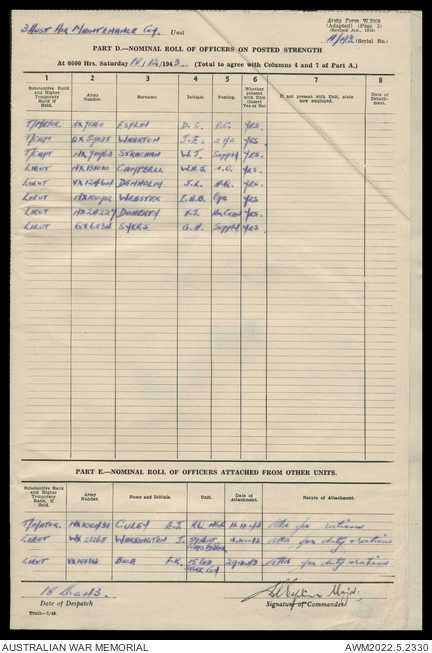 3 Aust Air Maintenance Coy. Unit
Army Form W.3008
(Adapted) (Page 2)
(Revised Jan., 1943)
(Serial No.)
PART D.—NOMINAL ROLL OF OFFICERS ON POSTED STRENGTH
At 0600 Hrs. Saturday 18/12/1943. (Total to agree with Columns 4 and 7 of Part A.)
1 2 3 4 5 6 7 8
Substantive Rank and Higher Temporary Rank if Held. Army Number. Surname. Initials. Posting. Whether present with Unit (Insert Yes or No) If not present with Unit, state how employed. Date of Detachment.
T/Major ESPLIN D.S. O.C. YES.
T/Capt WHARTON J.E. 2 i/c YES.
T/Capt STRACHAN W.J. Supply YES.
Lieut CAMPBELL YES.
Lieut DENHOLM J.L. YES.
Lieut WEBSTER E.H.B. Ops YES.
Lieut DOHERTY YES.
Lieut SYKES G.H. Supply YES.
PART E.—NOMINAL ROLL OF OFFICERS ATTACHED FROM OTHER UNITS.
Substantive Rank and Higher Temporary Rank, if Held. Army Number. Name and Initials. Unit. Date of Attachment. Nature of Attachment.
T/Major CULEY E.J. Atta for rations
Lieut VX 21268 WARRINGTON J. Atta for duty & rations
Lieut F.K. Atta for duty & rations
18 Dec 43
Major
Date of Despatch Signature of Commander
Truth—7/43.
AUSTRALIAN WAR MEMORIAL AWM2022.5.2330